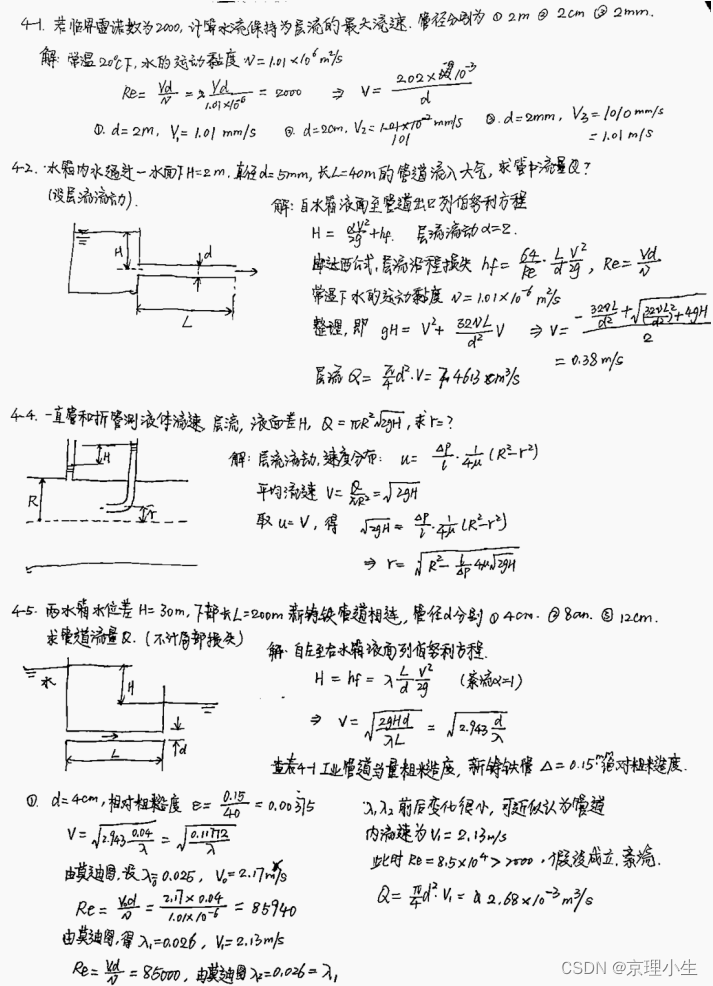 4-1. 若临界雷诺数为2000, 计算水流保持为层流的最大流速. 管径分别为 ① 2m ② 2cm ③ 2mm.
解: 常温20℃下, 水的运动黏度 ν=1.01×10⁶ m²/s
Re = Vd/ν = Vd/1.01×10⁻⁶ = 2000 ⇒ V = 2.02×10⁻³/d
①. d=2m, V₁=1.01 mm/s ②. d=2cm, V₂= 101 mm/s ③. d=2mm, V₃=1010 mm/s
= 1.01 m/s
4-2. 水箱内水通过一水面下H=2m. 直径d=5mm, 长L=40m的管道流入大气, 求管中流量Q?
(设层流流动).
H
d
L
解: 自水箱液面至管道出口列伯努利方程
H = αV²/2g + hf. 层流流动α=2.
摩达西公式, 层流沿程损失 hf = 64/Re · L/d V²/2g , Re = Vd/ν
常温下水的运动黏度 ν=1.01×10⁻⁶ m²/s
整理, 即 gH = V² + 32νL/d² V ⇒ V = (-32νL/d² + √((32νL/d²)²+4gH))/2
= 0.38 m/s
层流 Q = π/4 d²·V = 7.4613 cm³/s
4-4. 一直管和折管测液体流速, 层流, 液面差H, Q = πR²√2gH, 求r=?
H
R
r
解: 层流流动, 速度分布: u = Δp/l · 1/4μ (R²-r²)
平均流速 V = Q/πR² = √2gH
取 u=V, 得 √2gH = Δp/l · 1/4μ (R²-r²)
⇒ r = √(R² - l/Δp 4μ√2gH)
4-5. 两水箱水位差H=30m, 下部长L=200m 新铸铁管道相连, 管径d分别 ① 4cm. ② 8cm. ③ 12cm.
求管道流量Q. (不计局部损失)
水
H
L
d
解: 自左至右水箱液面列伯努利方程.
H = hf = λ L/d V²/2g (紊流α=1)
⇒ V = √(2gHd/λL) = √(2.943 d/λ)
查表4-1 工业管道当量粗糙度, 新铸铁管 Δ = 0.15mm 绝对粗糙度.
①. d=4cm, 相对粗糙度 ε = 0.15/40 = 0.00375
V = √(2.943 0.04/λ) = √(0.11772/λ)
由莫迪图, 设 λ₀=0.025, V₀=2.17m/s
Re = V₀d/ν = 2.17×0.04/1.01×10⁻⁶ = 85940
由莫迪图, 得 λ₁=0.026, V₁=2.13m/s
Re = Vd/ν = 85000, 由莫迪图 λ₂=0.026=λ₁
λ₁λ₂ 前后变化很小, 可近似认为管道
内流速为 V₁ = 2.13m/s
此时 Re = 8.5×10⁴ > 2000, 假设成立, 紊流.
Q = π/4 d²·V₁ = 2.68×10⁻³ m³/s
CSDN @京理小生